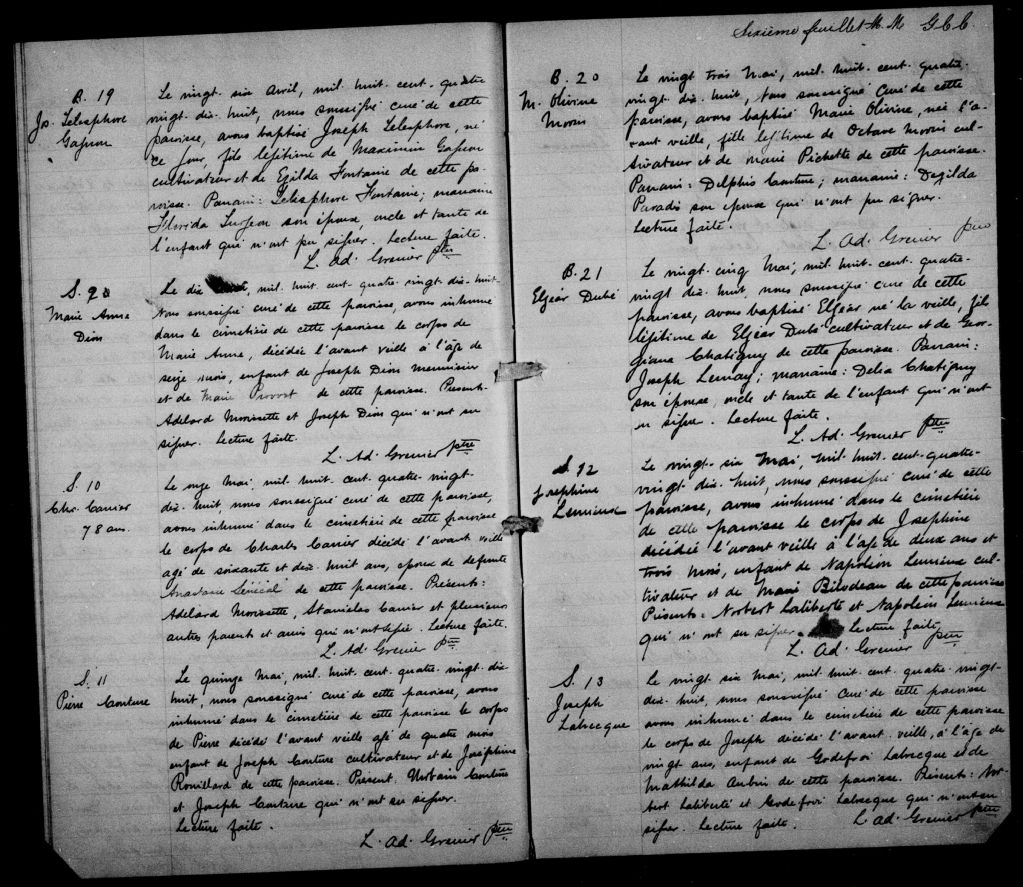 B. 19
Js. Télesphore
Gagnon
Le vingt-six avril, mil huit cent quatre
vingt-dix-huit, nous soussigné curé de cette
paroisse, avons baptisé Joseph Télesphore, né
ce jour, fils légitime de Maximin Gagnon
cultivateur et de Exilda Fontaine de cette pa-
roisse. Parrain: Télesphore Fontaine; marraine
Florida Turgeon son épouse, oncle et tante de
l'enfant qui n'ont pu signer. Lecture faite.
L. Ad. Grenier Ptre
S. 9
Marie Anna
Dion
Le dix mil huit cent quatre-vingt-dix-huit
Nous soussigné curé de cette paroisse, avons inhumé
dans le cimetière de cette paroisse le corps de
Marie Anna, décédée l'avant veille à l'âge de
seize mois, enfant de Joseph Dion meunier
et de Marie Provost de cette paroisse. Présents
Adélard Morissette et Joseph Dion qui n'ont su
signer. Lecture faite.
L. Ad. Grenier ptre
S. 10
Chs. Carrier
78 ans.
Le onze Mai, mil huit cent quatre-vingt-
dix-huit, nous soussigné curé de cette paroisse,
avons inhumé dans le cimetière de cette paroisse
le corps de Charles Carrier décédé l'avant veille
agé de soixante et dix-huit ans, époux de defunte
Anastasie Sénécal de cette paroisse. Présents:
Adélard Morissette, Stanislas Carrier et plusieurs
autres parents et amis qui n'ont signé. Lecture faite.
L. Ad. Grenier Ptre
S. 11
Pierre Couture
Le quinze Mai, mil huit cent quatre-vingt-dix-
huit, nous soussigné curé de cette paroisse, avons
inhumé dans le cimetière de cette paroisse le corps
de Pierre décédé l'avant veille agé de quatre mois
enfant de Joseph Couture cultivateur et de Joséphine
Rouillard de cette paroisse. Présent. Urbain Couture
et Joseph Couture qui n'ont su signer.
Lecture faite.
L. Ad. Grenier Ptre
Sixième feuillet M. M G.C.C.
B. 20
M. Olivine
Morin
Le vingt trois Mai, mil huit cent quatre-
vingt-dix-huit, Nous soussigné curé de cette
paroisse, avons baptisé Marie Olivine, née l'a-
vant veille, fille légitime de Octave Morin cul-
tivateur et de Marie Pichette de cette paroisse.
Parrain: Delphis Couture; marraine: Dézilda
Paradis son épouse qui n'ont pu signer.
Lecture faite.
L. Ad. Grenier ptre
B. 21
Elzéar Dubé
Le vingt-cinq Mai, mil huit cent quatre-
vingt-dix-huit, nous soussigné curé de cette
paroisse, avons baptisé Elzéar né la veille, fils
légitime de Elzéar Dubé cultivateur et de Geor-
giana Chatigny de cette paroisse. Parrain:
Joseph Lemay; marraine: Delia Chatigny
son épouse, oncle et tante de l'enfant qui n'ont
su signer. Lecture faite.
L. Ad. Grenier Ptre
S. 12
Josephine
Lemieux
Le vingt-six Mai, mil huit cent quatre-
vingt-dix-huit, nous soussigné curé de cette
paroisse, avons inhumé dans le cimetière
de cette paroisse le corps de Josephine
décédée l'avant veille à l'age de deux ans et
trois mois, enfant de Napoléon Lemieux cul-
tivateur et de Marie Bilodeau de cette paroisse
Présents. Norbert Laliberté et Napoléon Lemieux
qui n'ont su signer. Lecture faite
L. Ad. Grenier Ptre
S. 13
Joseph
Labrecque
Le vingt-six Mai, mil huit cent quatre vingt-
dix-huit, nous soussigné curé de cette paroisse
avons inhumé dans le cimetière de cette paroisse
le corps de Joseph décédé l'avant-veille, à l'âge de
vingt ans, enfant de Godefroi Labrecque et de
Mathilda Aubin de cette paroisse. Présents: Nor-
bert Laliberté et Godefroi Labrecque qui n'ont su
signer. Lecture faite. L. Ad. Grenier Ptre